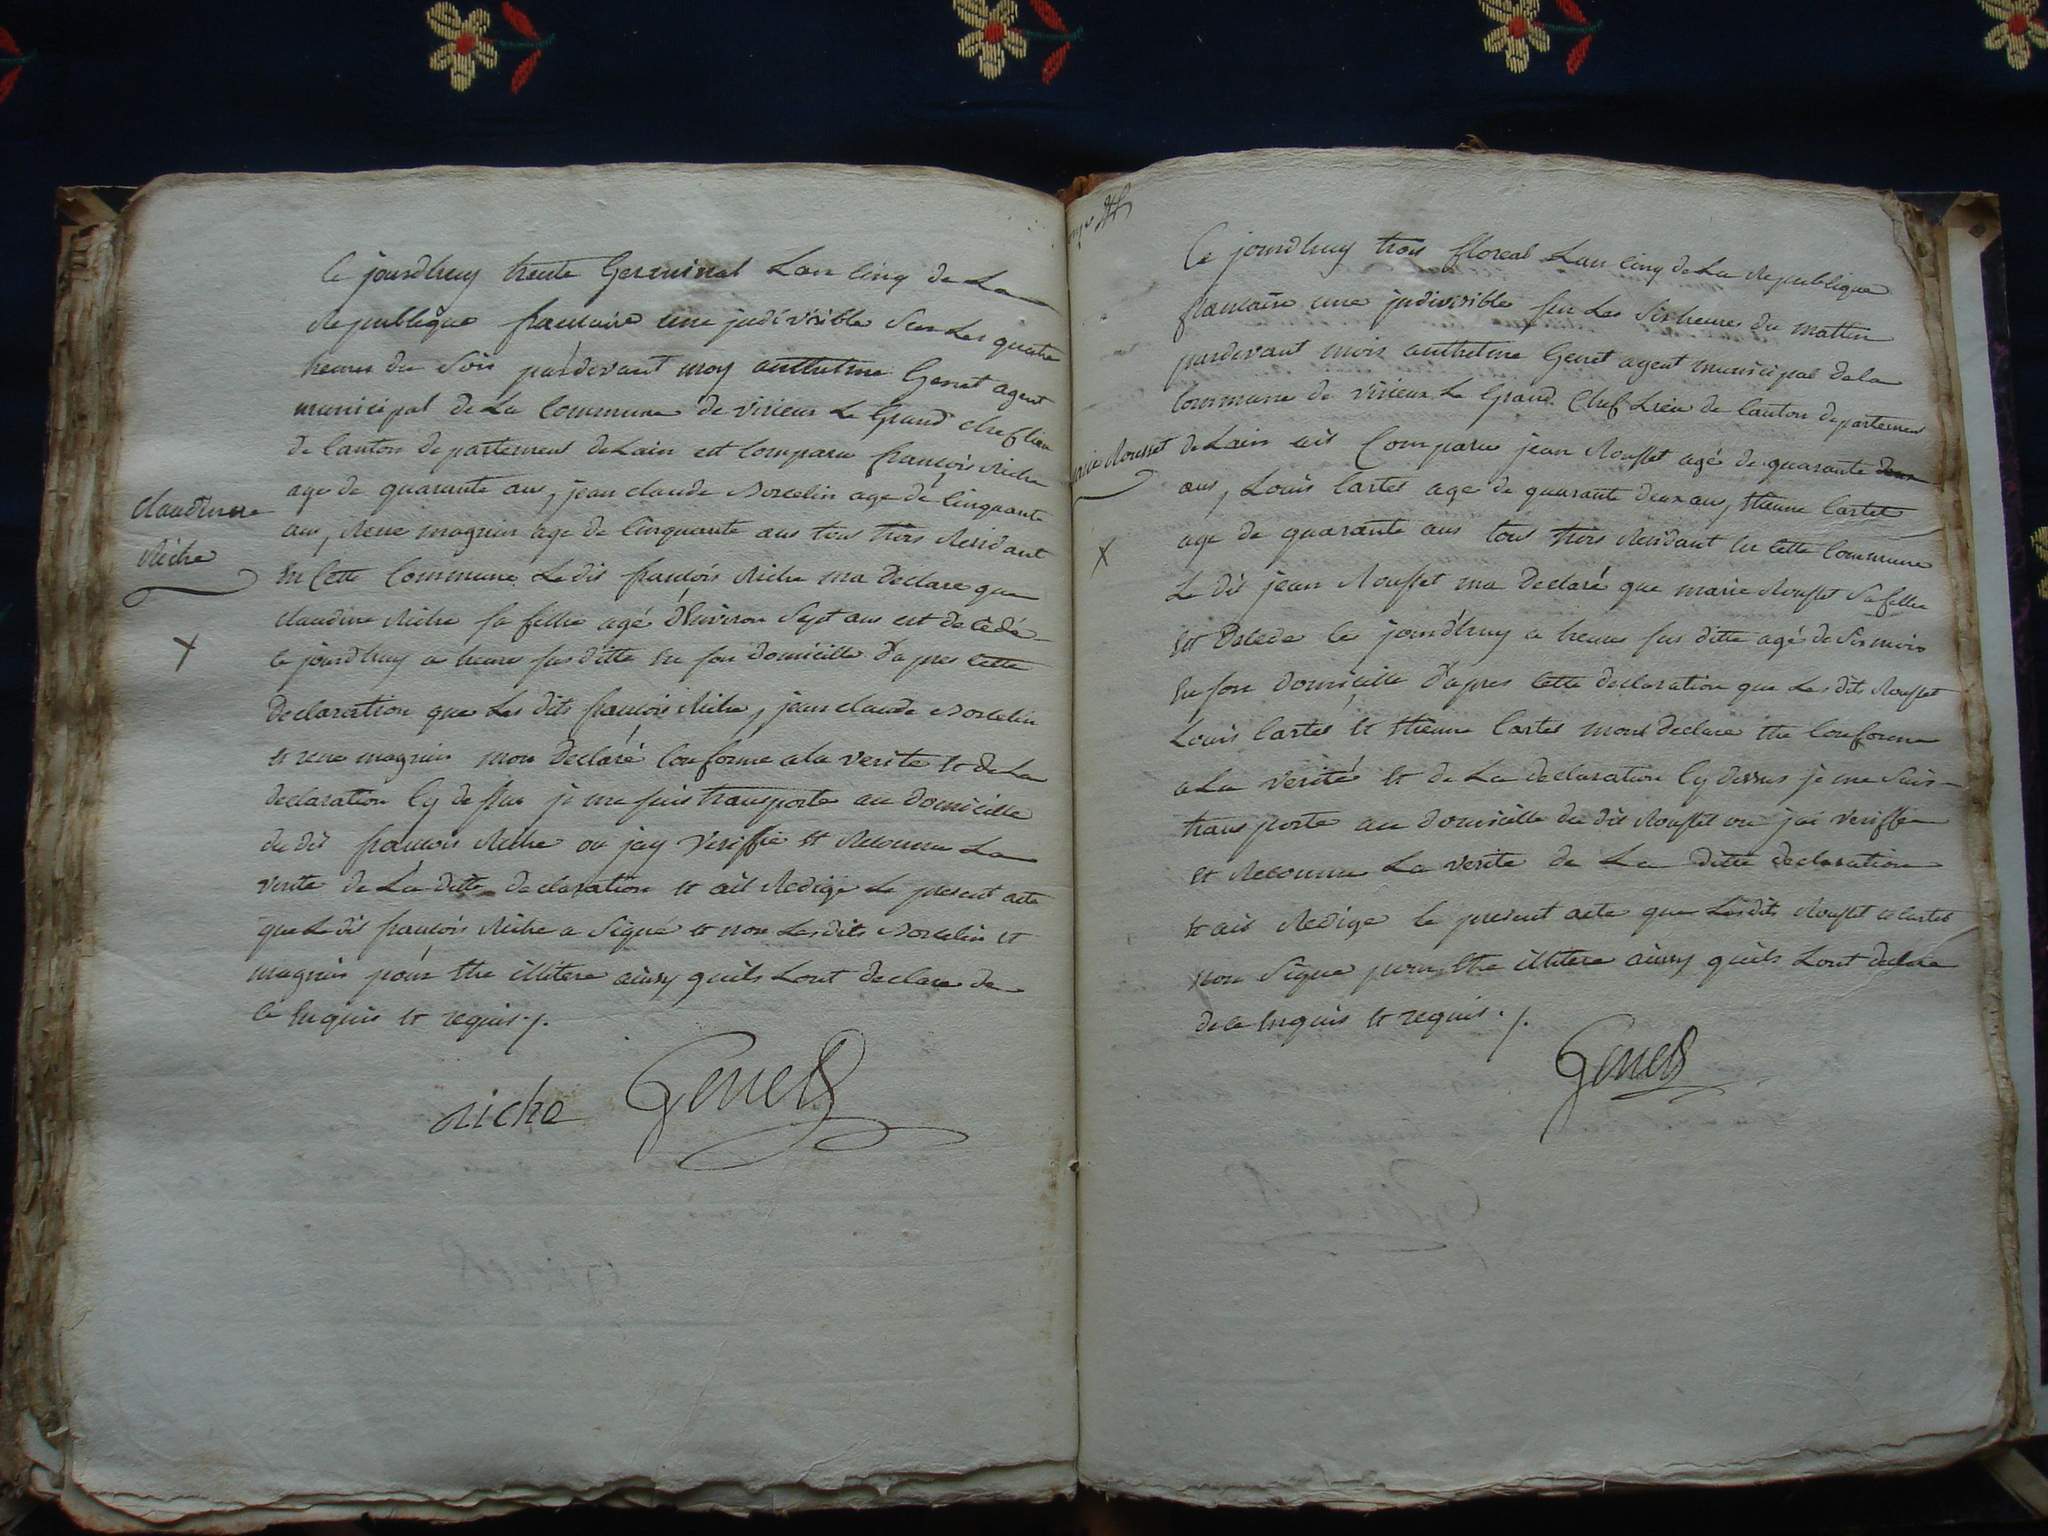 Ce jourdhuy trente Germinal Lan cinq de La
Republique francaise une indivisible Sur Les quatre
heures du Soir pardevant moy anthelme Genet agent
municipal de La Commune de virieux Le Grand chef lieu
de Canton departement de Lain est Comparu françois Riche
age de quarante ans, jean claude age de Cinquante
ans, Rene magnin age de Cinquante ans tous trois Residant
En Cette Commune Ledit françois Riche ma Declare que
claudine Riche sa fillie agé d'Environ Sept ans est decedé
ce jourdhuy a heure sus ditte En son domicille d'apres Cette
Declaration que Les dits françois Riche, jean claude
et rene magnin mon Declaré Conforme a la verite et de La
declaration Cy dessus je me suis transporte au domicille
du dit francois Riche ou jay Veriffie et Reconnu La
verite de La ditte declaration et ait Redige Le present acte
que Le dit françois Riche a Signé et non Lesdits et
magnin pour Etre illitere ainsy quils Lont declare de
ce Enquis et requis ./.
riche Genet
claudinne
Riche
X
Ce jourdhuy trois floreal Lan cinq de La Republique
francaise une indivisible sur Les Six heures du mattin
pardevant mois anthelme Genet agent municipal de la
Commune de virieux Le Grand Chef Lieu de Canton departement
de Lain ait Comparu jean Rousset agé de quarante deux
ans, Louis Cartet age de quarante deux ans, Etienne Cartet
age de quarante ans tous trois Residant En Cette Commune
Le dit jean Rousset ma declaré que marie Rousset Sa fillie
Est Decede ce jourdhuy a heure sus ditte agé de Six mois
En son domicille d'apres Cette declaration que Les dits Rousset
Louis Cartet et Etienne Cartet mont declare Etre Conforme
a La Verité et de La declaration Cy dessus je me Suis
transporte au domicille du dit Rousset ou jai Veriffie
et Reconnu La verite de La ditte declaration
et ait Redige le present acte que Lesdits Rousset et Cartet
non Signe pour Etre illitere ainsy quils Lont declare
de ce Enquis et requis ./.
Genet
marie Rousset
X